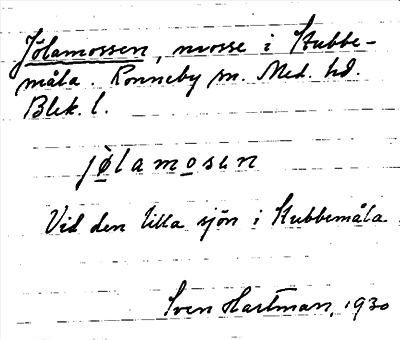 Jölamossen, mosse i Stubbe-
måla. Ronneby sn. Med. hd.
Blek. l.
jø̀lamosen
Vid den lilla sjön i Stubbemåla.
Sven Hartman, 1930